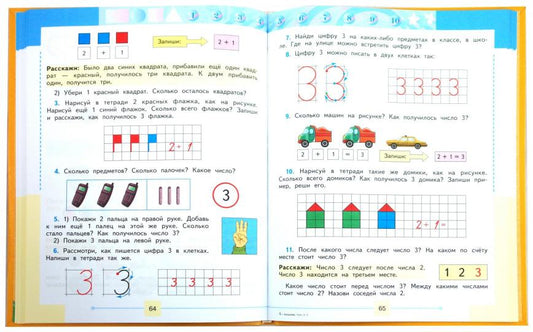 2 + 1
Запиши:
2 + 1
Расскажи: Было два синих квадрата, прибавили ещё один квад-
рат — красный, получилось три квадрата. К двум прибавить
один, получится три.
2) Убери 1 красный квадрат. Сколько осталось квадратов?
3. Нарисуй в тетради 2 красных флажка, как на рисунке.
Нарисуй ещё 1 синий флажок. Сколько всего флажков? Запиши
и расскажи, как получилось 3 флажка.
2+1
4. Сколько предметов? Сколько палочек? Какое число?
3
5. 1) Покажи 2 пальца на правой руке. Добавь
к ним ещё 1 палец на этой же руке. Сколько
стало пальцев? Как получили число 3?
2) Покажи 3 пальца на левой руке.
6. Рассмотри, как пишется цифра 3 в клетках.
Напиши в тетради так же.
3 3 3 3 3 3
64
1 2 3 4 5 6 7 8 9 10
7. Найди цифру 3 на каких-либо предметах в классе, в шко-
ле. Где на улице можно встретить цифру 3?
8. Цифру 3 можно писать в двух клетках так:
3 3 3 3 3 3
9. Сколько машин на рисунке? Как получилось число 3?
2 + 1 = 3
Запиши:
2 + 1 = 3
10. Нарисуй в тетради такие же домики, как на рисунке.
Сколько всего домиков? Как получилось 3 домика? Запиши при-
мер, реши его.
2+1=
11. После какого числа следует число 3? На каком по счёту
месте стоит число 3?
Расскажи: Число 3 следует после числа 2.
Число 3 находится на третьем месте.
1 2 3
Какое число стоит перед числом 3? Между какими числами
стоит число 2? Назови соседей числа 2.
65